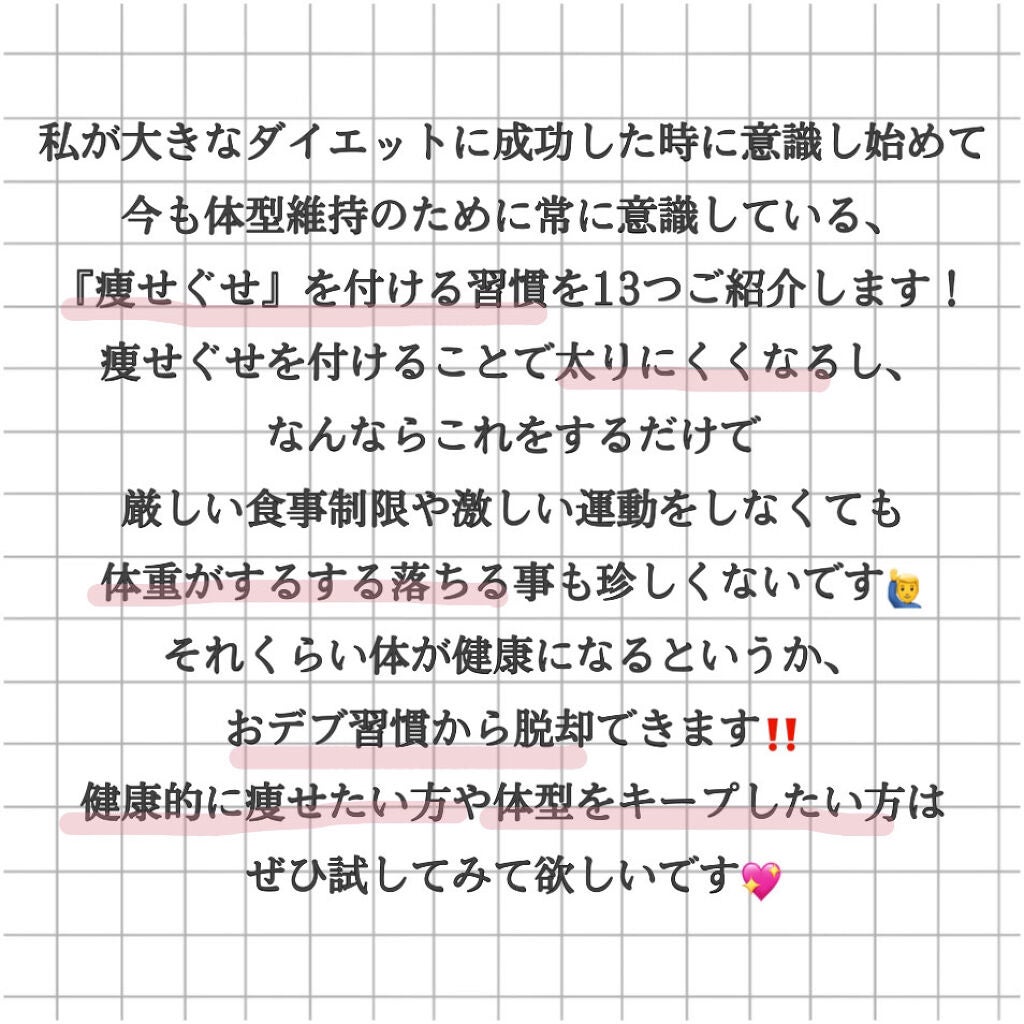 私が大きなダイエットに成功した時に意識し始めて
今も体型維持のために常に意識している、
『痩せぐせ』を付ける習慣を13つご紹介します！
痩せぐせを付けることで太りにくくなるし、
なんならこれをするだけで
厳しい食事制限や激しい運動をしなくても
体重がするする落ちる事も珍しくないです🙋‍♂️
それくらい体が健康になるというか、
おデブ習慣から脱却できます‼️
健康的に痩せたい方や体型をキープしたい方は
ぜひ試してみて欲しいです💖